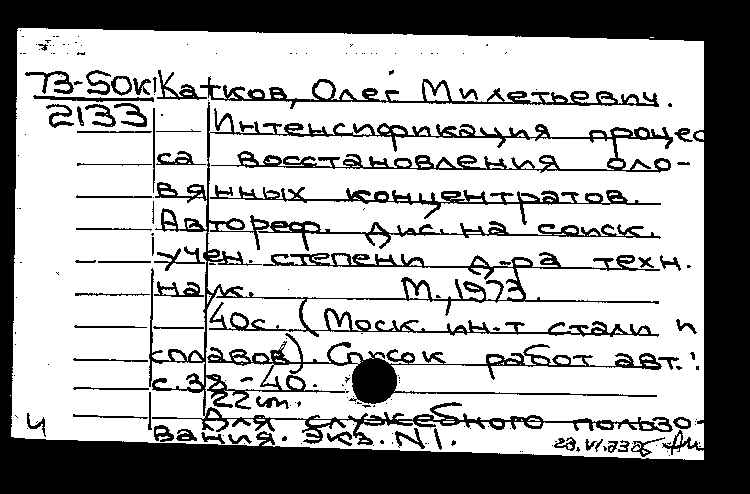 73-50к Катков, Олег Милетьевич.
2133 Интенсификация процес
са восстановления оло-
вянных концентратов.
Автореф. дис. на соиск.
учен. степени д-ра техн.
наук. М., 1973.
40с. (Моск. ин-т стали и
сплавов). Список работ авт.:
с. 38-40.
22 cm.
Для служебного пользо-
вания. экз. N1.
Ч